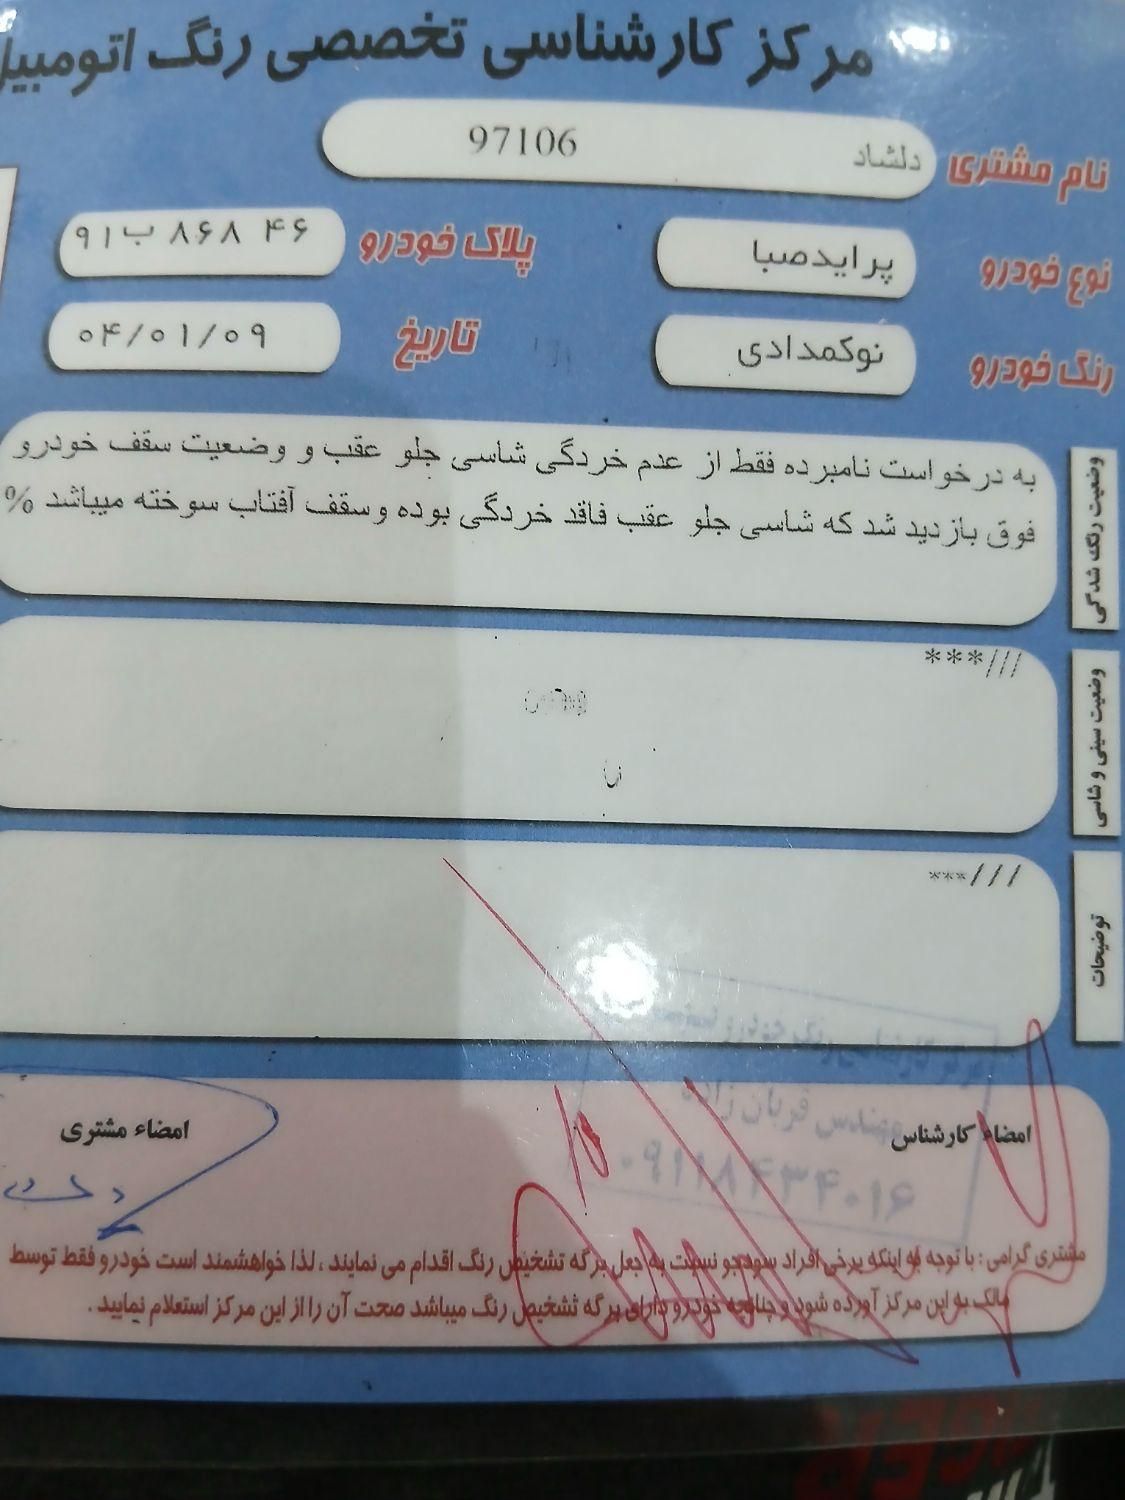 مرکز کارشناسی تخصصی رنگ اتومبیل
نام مشتری دلشاد 97106
نوع خودرو پرایدصبا پلاک خودرو ۹۱ب۸۶۸ ۴۶
رنگ خودرو نوکمدادی تاریخ ۰۴/۰۱/۰۹
وضعیت رنگ شدگی
به درخواست نامبرده فقط از عدم خردگی شاسی جلو عقب و وضعیت سقف خودرو
فوق بازدید شد که شاسی جلو عقب فاقد خردگی بوده وسقف آفتاب سوخته میباشد %
وضعیت سینی و شاسی
///***
توضیحات
///***
امضاء کارشناس امضاء مشتری
مهندس قربان زاده
۰۹۱۱۸۴۳۴۰۱۶
مشتری گرامی : با توجه به اینکه برخی افراد سودجو نسبت به جعل برگه تشخیص رنگ اقدام می نمایند ، لذا خواهشمند است خودرو فقط توسط
مالک به این مرکز آورده شود و چنانچه خودرو دارای برگه تشخیص رنگ میباشد صحت آن را از این مرکز استعلام نمایید .